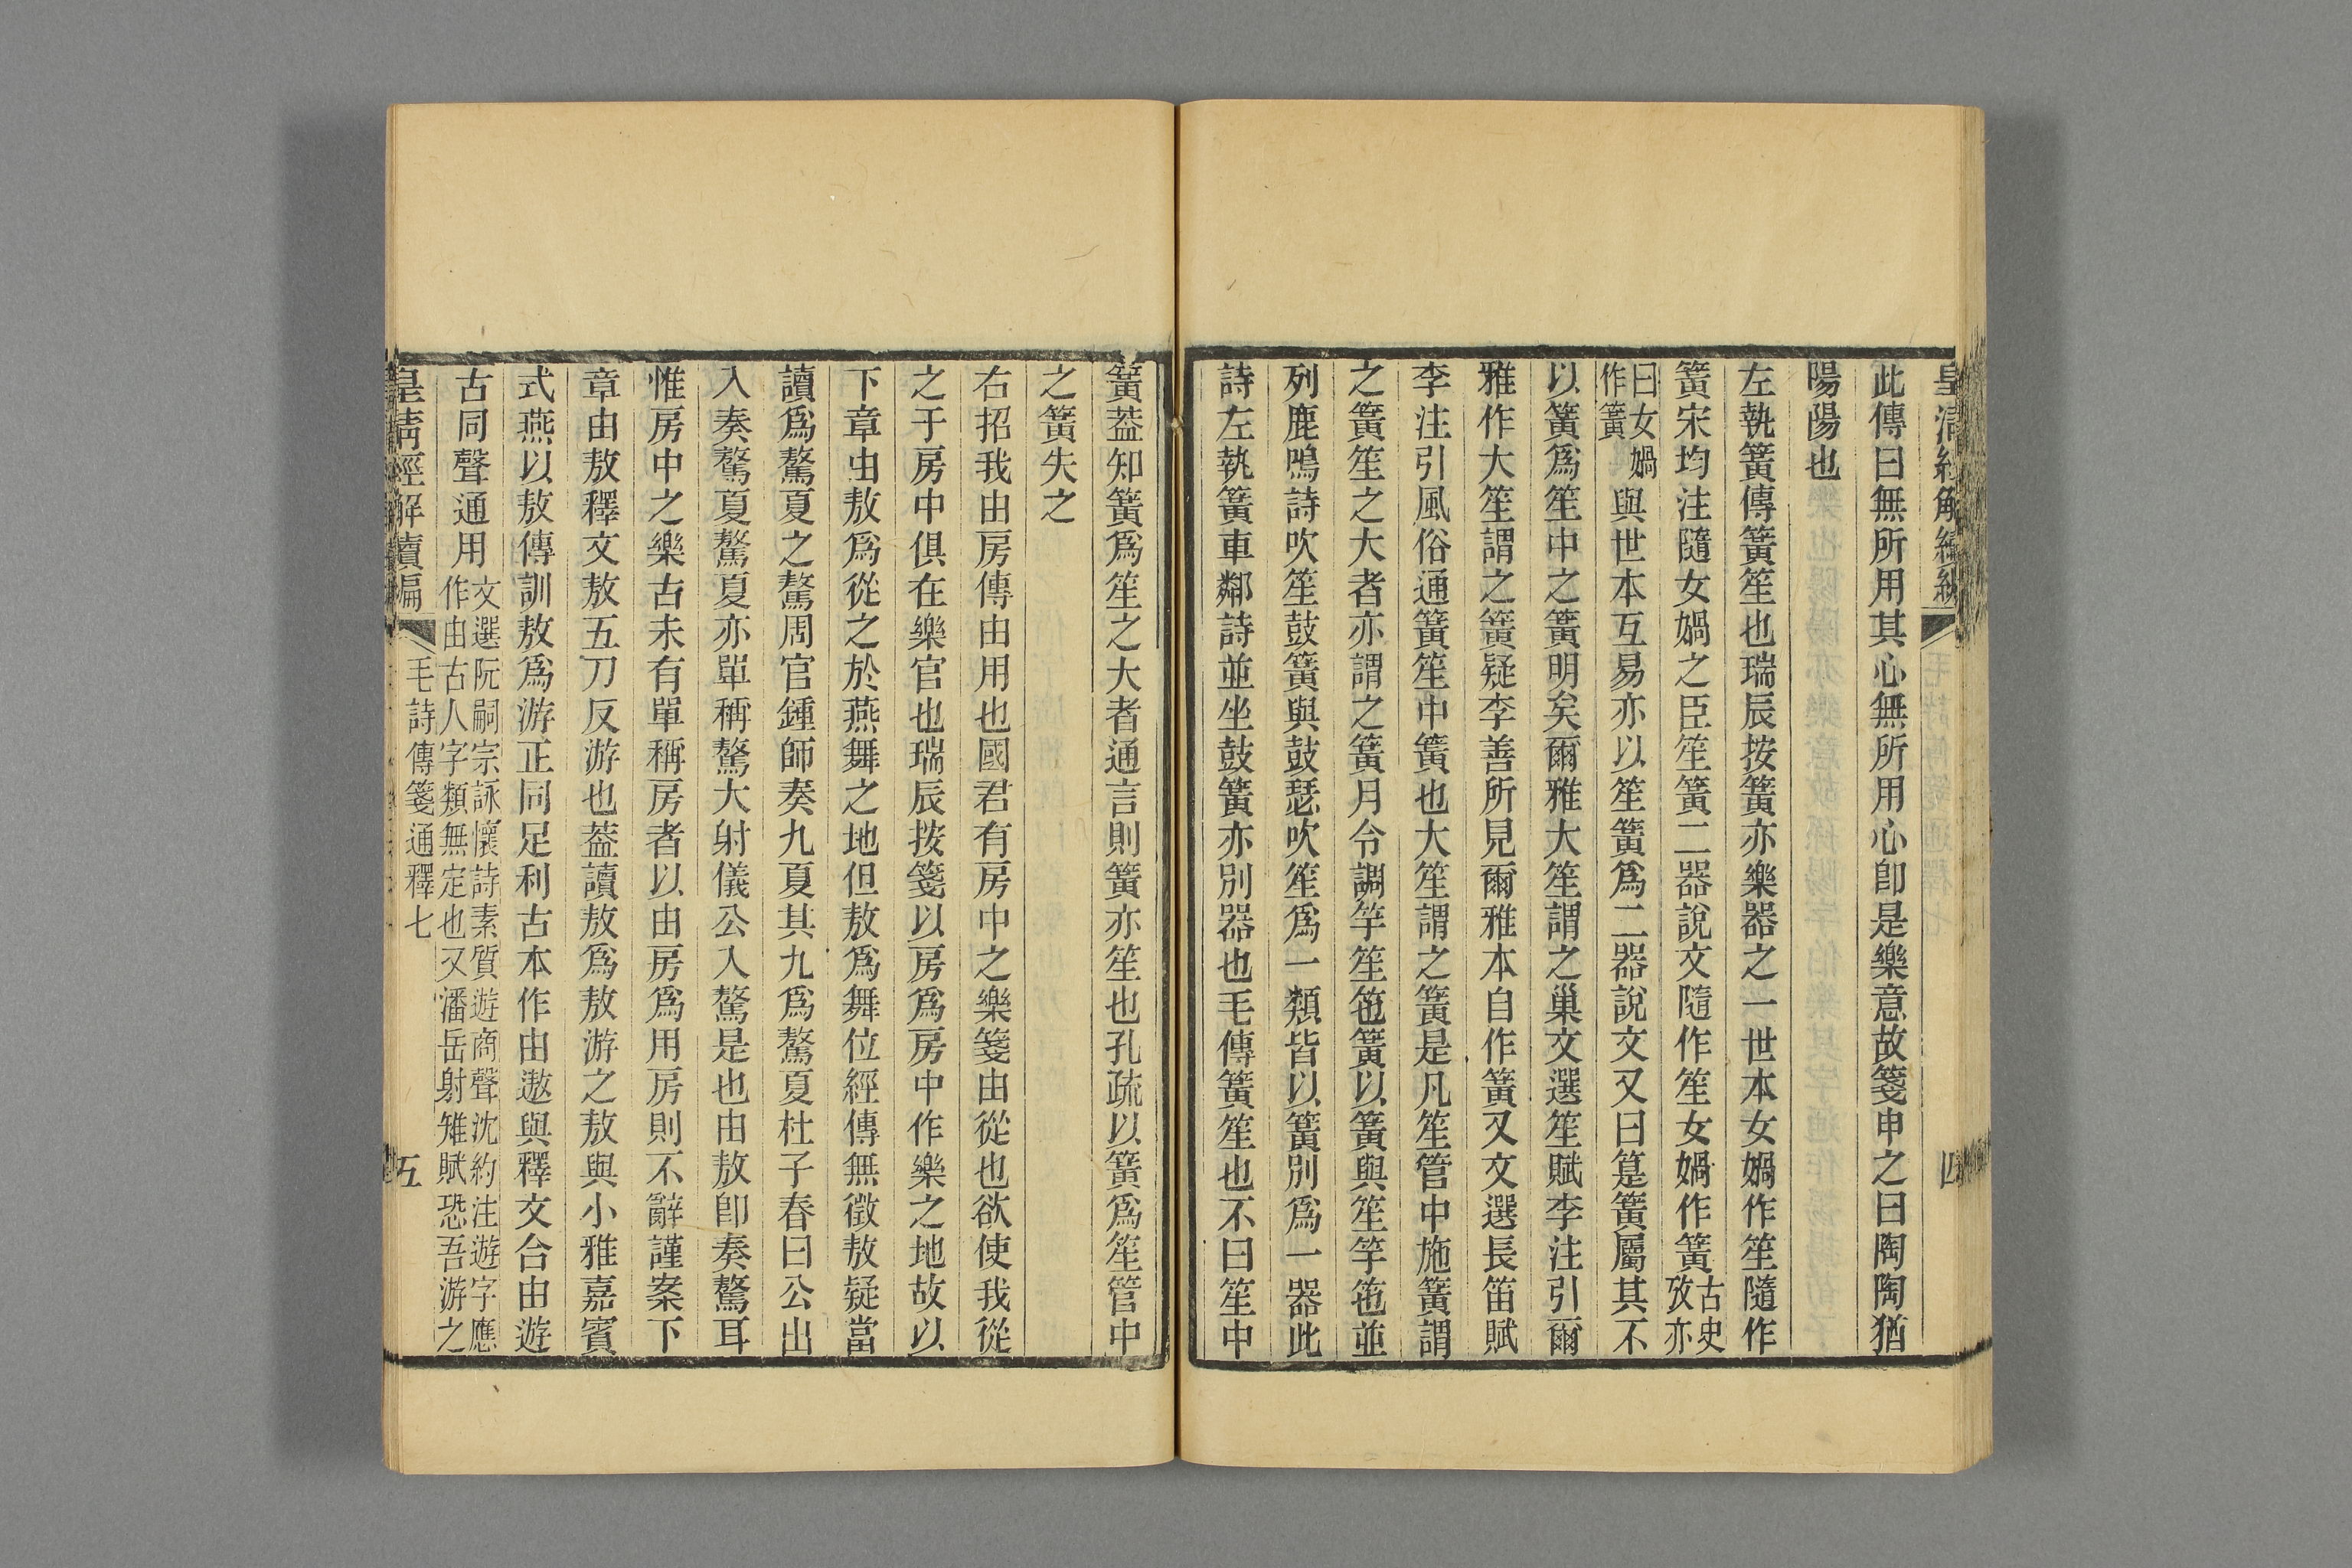 皇清經解續編
四
此傳曰無所用其心無所用心卽是樂意故箋申之曰陶陶猶
陽陽也
左執簧傳簧笙也瑞辰按簧亦樂器之一世本女媧作笙隨作
簧宋均注隨女媧之臣笙簧二器說文隨作笙女媧作簧古史攷亦
曰女媧作簧與世本互易亦以笙簧爲二器說文又曰箟簧屬其不
以簧爲笙中之簧明矣爾雅大笙謂之巢文選笙賦李注引爾
雅作大笙謂之簧疑李善所見爾雅本自作簧又文選長笛賦
李注引風俗通簧笙中簧也大笙謂之簧是凡笙管中施簧謂
之簧笙之大者亦謂之簧月令調竽笙箎簧以簧與笙竽箎並
列鹿鳴詩吹笙鼓簧與鼓瑟吹笙爲一類皆以簧別爲一器此
詩左執簧車鄰詩並坐鼓簧亦別器也毛傳簧笙也不曰笙中
簧葢知簧爲笙之大者通言則簧亦笙也孔疏以簧爲笙管中
之簧失之
右招我由房傳由用也國君有房中之樂箋由從也欲使我從
之于房中俱在樂官也瑞辰按箋以房爲房中作樂之地故以
下章由敖爲從之於燕舞之地但敖爲舞位經傳無徵敖疑當
讀爲驁夏之驁周官鍾師奏九夏其九爲驁夏杜子春曰公出
入奏驁夏驁夏亦單稱驁大射儀公入驁是也由敖卽奏驁耳
惟房中之樂古未有單稱房者以由房爲用房則不辭謹案下
章由敖釋文敖五刀反游也葢讀敖爲敖游之敖與小雅嘉賓
式燕以敖傳訓敖爲游正同足利古本作由遨與釋文合由遊
古同聲通用文選阮嗣宗詠懷詩素質遊商聲沈約注遊字應作由古人字類無定也又潘岳射雉賦恐吾游之
皇清經解續編
毛詩傳箋通釋七
五